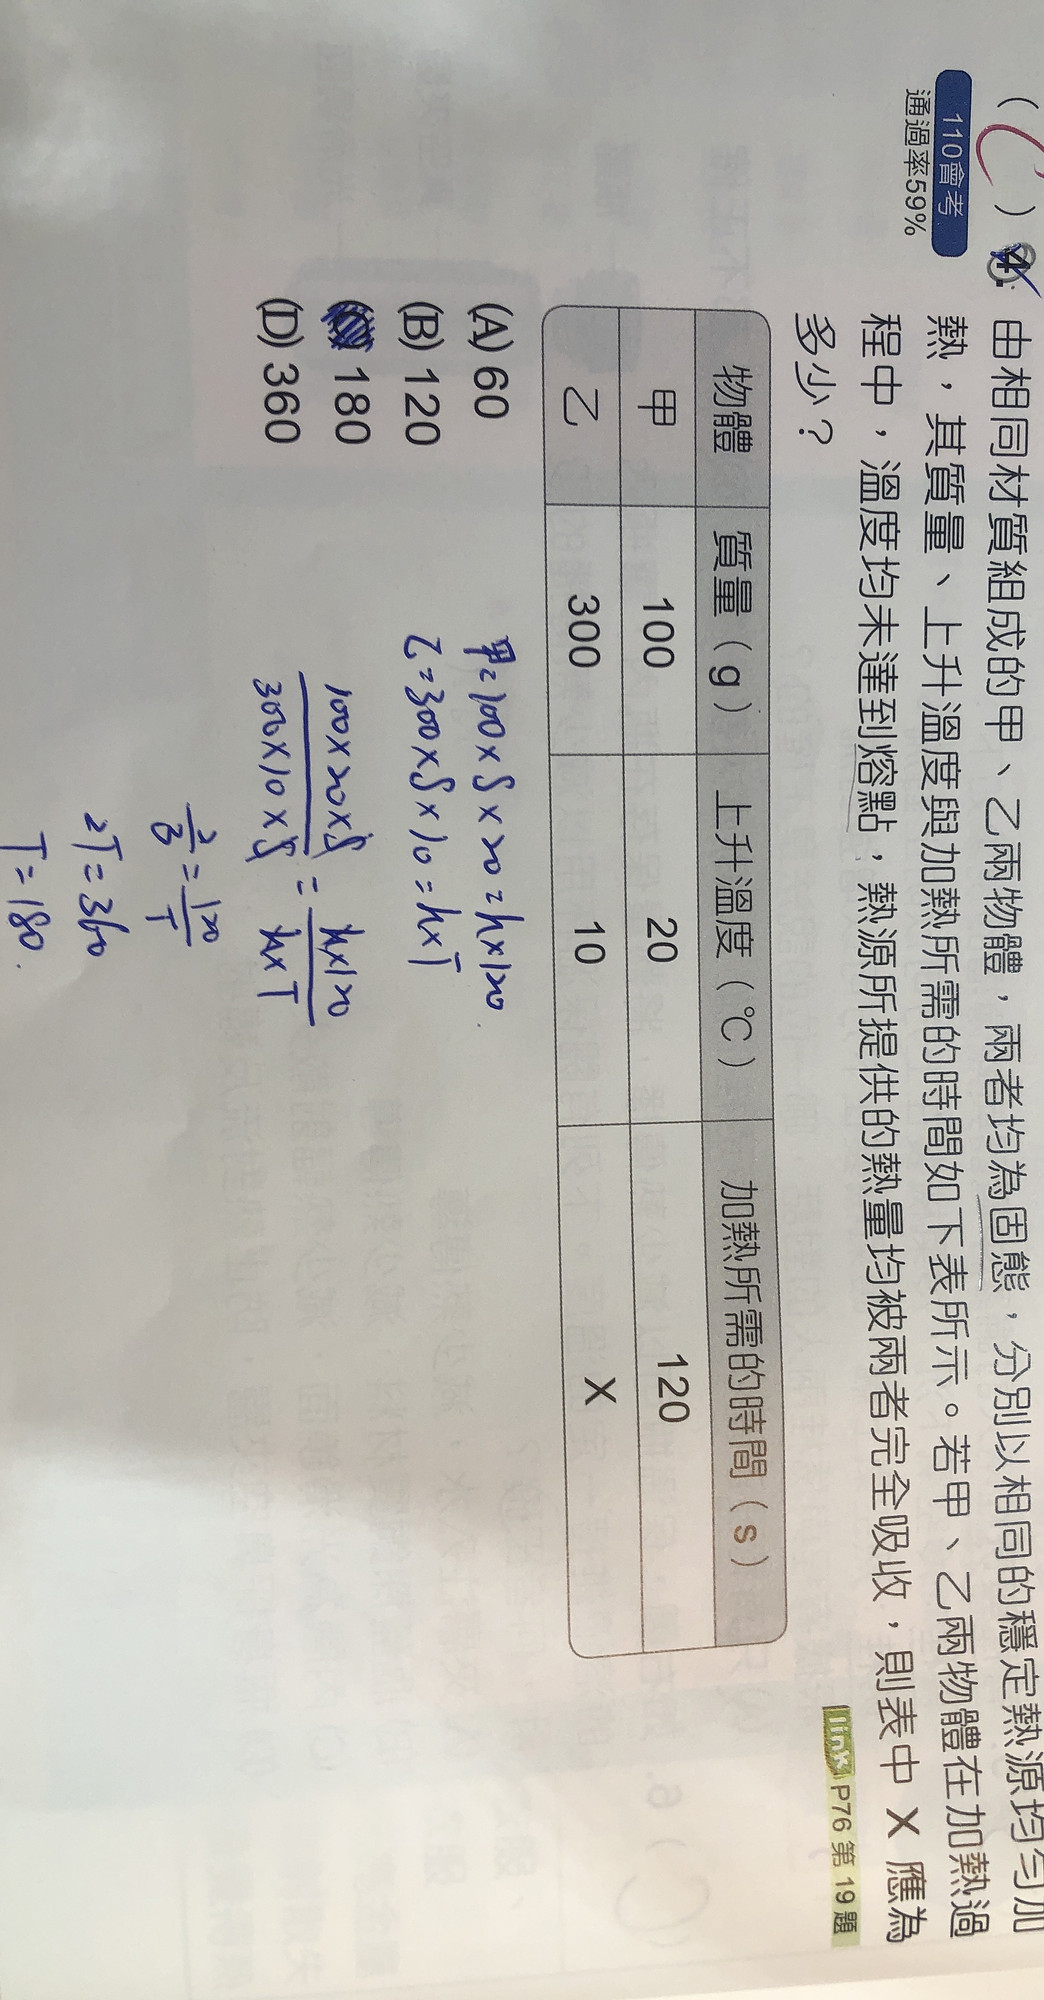 ( C ) 4. 由相同材質組成的甲、乙兩物體，兩者均為固態，分別以相同的穩定熱源均勻加
110會考
通過率59%
熱，其質量、上升溫度與加熱所需的時間如下表所示。若甲、乙兩物體在加熱過
程中，溫度均未達到熔點，熱源所提供的熱量均被兩者完全吸收，則表中 X 應為
多少？
link P76 第 19 題
物體 質量（g） 上升溫度（℃） 加熱所需的時間（s）
甲 100 20 120
乙 300 10 X
(A) 60
(B) 120
(C) 180
(D) 360
甲=100×S×20=h×120
乙=300×S×10=h×T
100×20×S / 300×10×S = h×120 / h×T
2/3 = 120/T
2T=360
T=180.